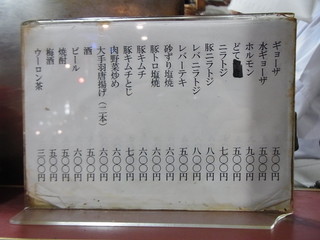 ギョーザ 五〇〇円
水ギョーザ 五〇〇円
ホルモン 九〇〇円
どて 五〇〇円
ニラトジ 七〇〇円
豚ニラトジ 八〇〇円
レバニラトジ 八〇〇円
レバーテキ 五〇〇円
砂ずり塩焼 六〇〇円
豚トロ塩焼 八〇〇円
豚キムチ 六〇〇円
豚キムチとじ 七〇〇円
肉野菜炒め 六〇〇円
大手羽唐揚げ(二本) 六〇〇円
酒 五〇〇円
ビール 六〇〇円
焼酎 五〇〇円
梅酒 五〇〇円
ウーロン茶 三〇〇円